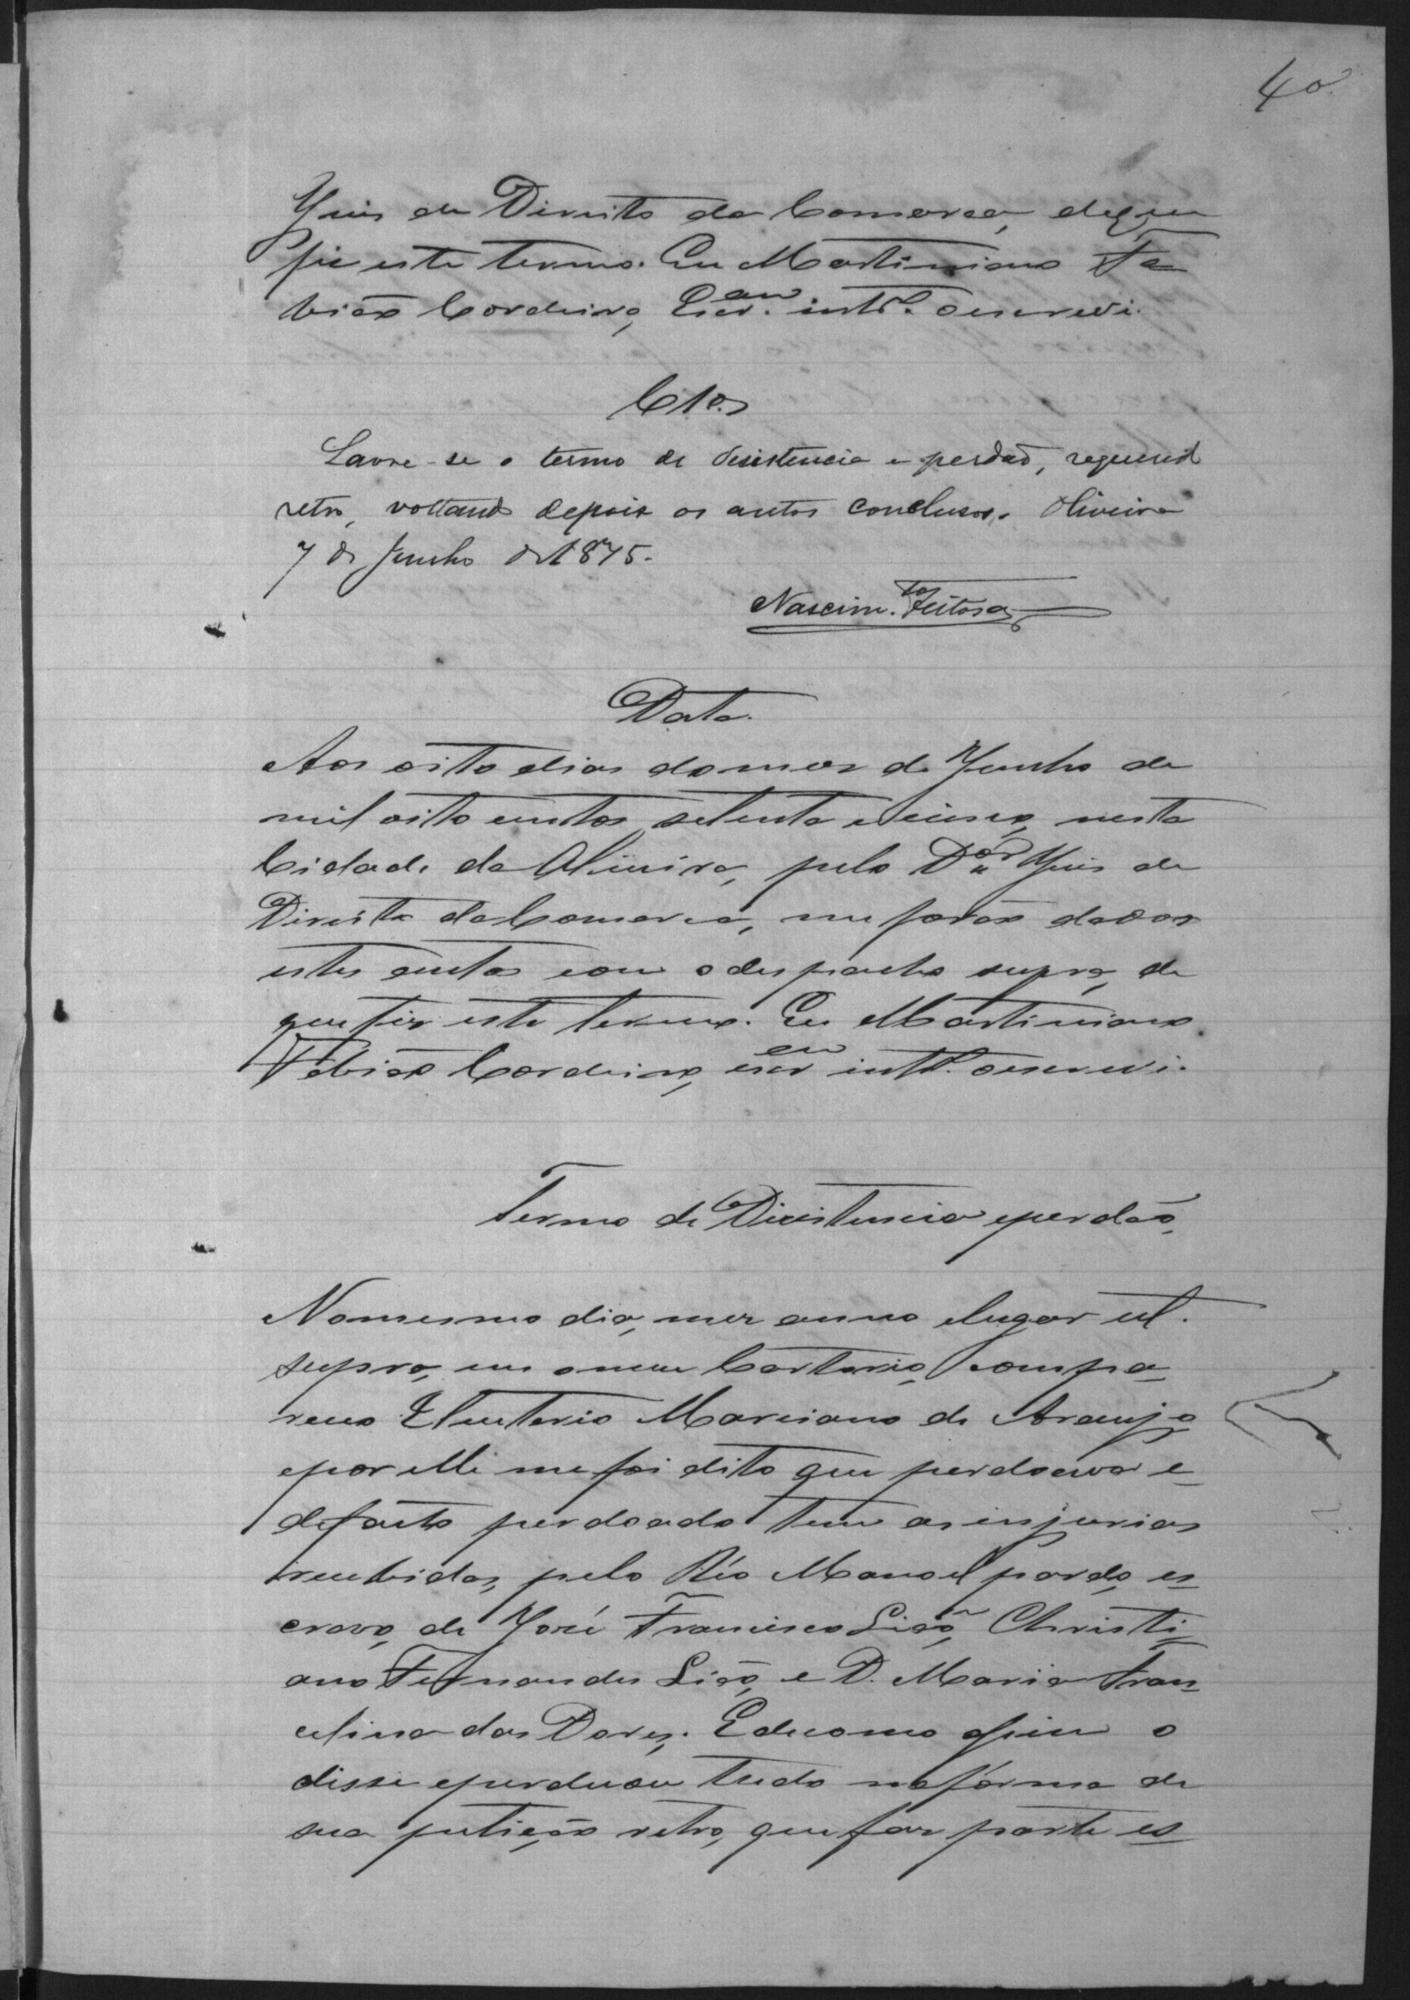 40
Juis de Direito da Comarca, de que
fis este termo. Eu Martiniano Fa
bião Cordeiro, Escr.am intr.o o escrevi.
Clos
Lavre-se o termo de desistencia e perdão, requerid
retro, voltando depois os autos conclusos. Oliveira
7 de Junho de 1875.
Nascim.to Feitosa
Data.
Aos oito dias do mes de Junho de
mil oito centos setenta e cinco, nesta
Cidade da Oliveira, pelo D.or Juis de
Direito da Comarca, me forão dados
estes autos com o despacho supra, de
que fis este termo. Eu Martiniano
Fabião Cordeiro, escr.am intr.o o escrevi.
Termo de Dixistencia e perdão,
No mesmo dia, mez anno e lugar ut.
supra, em o meu Cartorio, compa
receo Eleuterio Marciano de Araujo
e por elle me foi dito que perdoava e
de facto perdoado tem as injurias
recebidas, pelo Réo Manoel pardo, es
cravo, de José Francisco Lisão, Christi
ano Fernandes Lisão, e D. Maria Fran
celina das Dores. E de como assim o
disse e perdoou tudo na fórma de
sua petição retro, que faz parte es